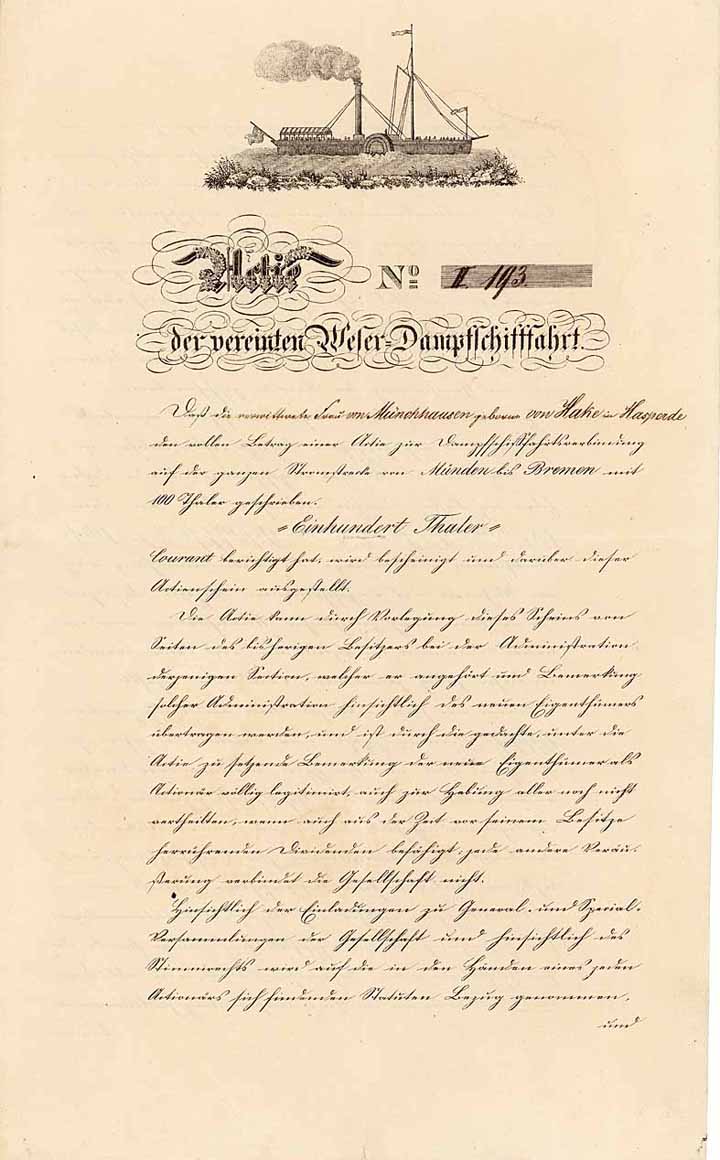 Actie No II 193.
der vereinten Weser-Dampfschifffahrt.
Daß die verwittwete Frau von Münchhausen geborne von Hake in Hasperde
den vollen Betrag einer Actie zur Dampfschifffahrtsverbindung
auf der ganzen Stromstrecke von Münden bis Bremen mit
100 Thaler geschrieben:
"Einhundert Thaler"
Courant berichtigt hat, wird bescheinigt und darüber dieser
Actienschein ausgestellt.
Die Actie kann durch Vorlegung dieses Scheins von
Seiten des bisherigen Besitzers bei der Administration
derjenigen Section, welcher er angehört und Bemerkung
solcher Administration hinsichtlich des neuen Eigenthümers
übertragen werden, und ist durch die gedachte, unter die
Actie zu setzende Bemerkung der neue Eigenthümer als
Actionär völlig legitimirt, auch zur Hebung aller noch nicht
vertheilten, wenn auch aus der Zeit vor seinem Besitze
herrührenden Dividenden befähigt; jede andere Veräu-
ßerung verbindet die Gesellschaft nicht.
Hinsichtlich der Einladungen zu General- und Special-
Versammlungen der Gesellschaft und hinsichtlich des
Stimmrechts wird auf die in den Händen eines jeden
Actionärs sich findenden Statuten Bezug genommen,
und